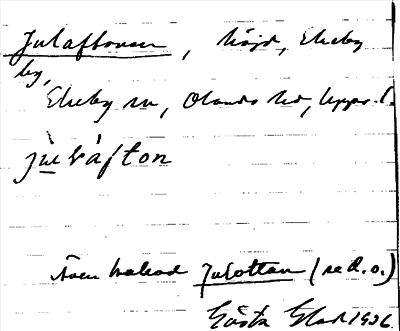 Julaftonen, höjd, Ekeby
by,
Ekeby sn, Olands hd, Upps. l.
julàfton
Även kallad Julottan (se d.o.)
Gösta 1936.